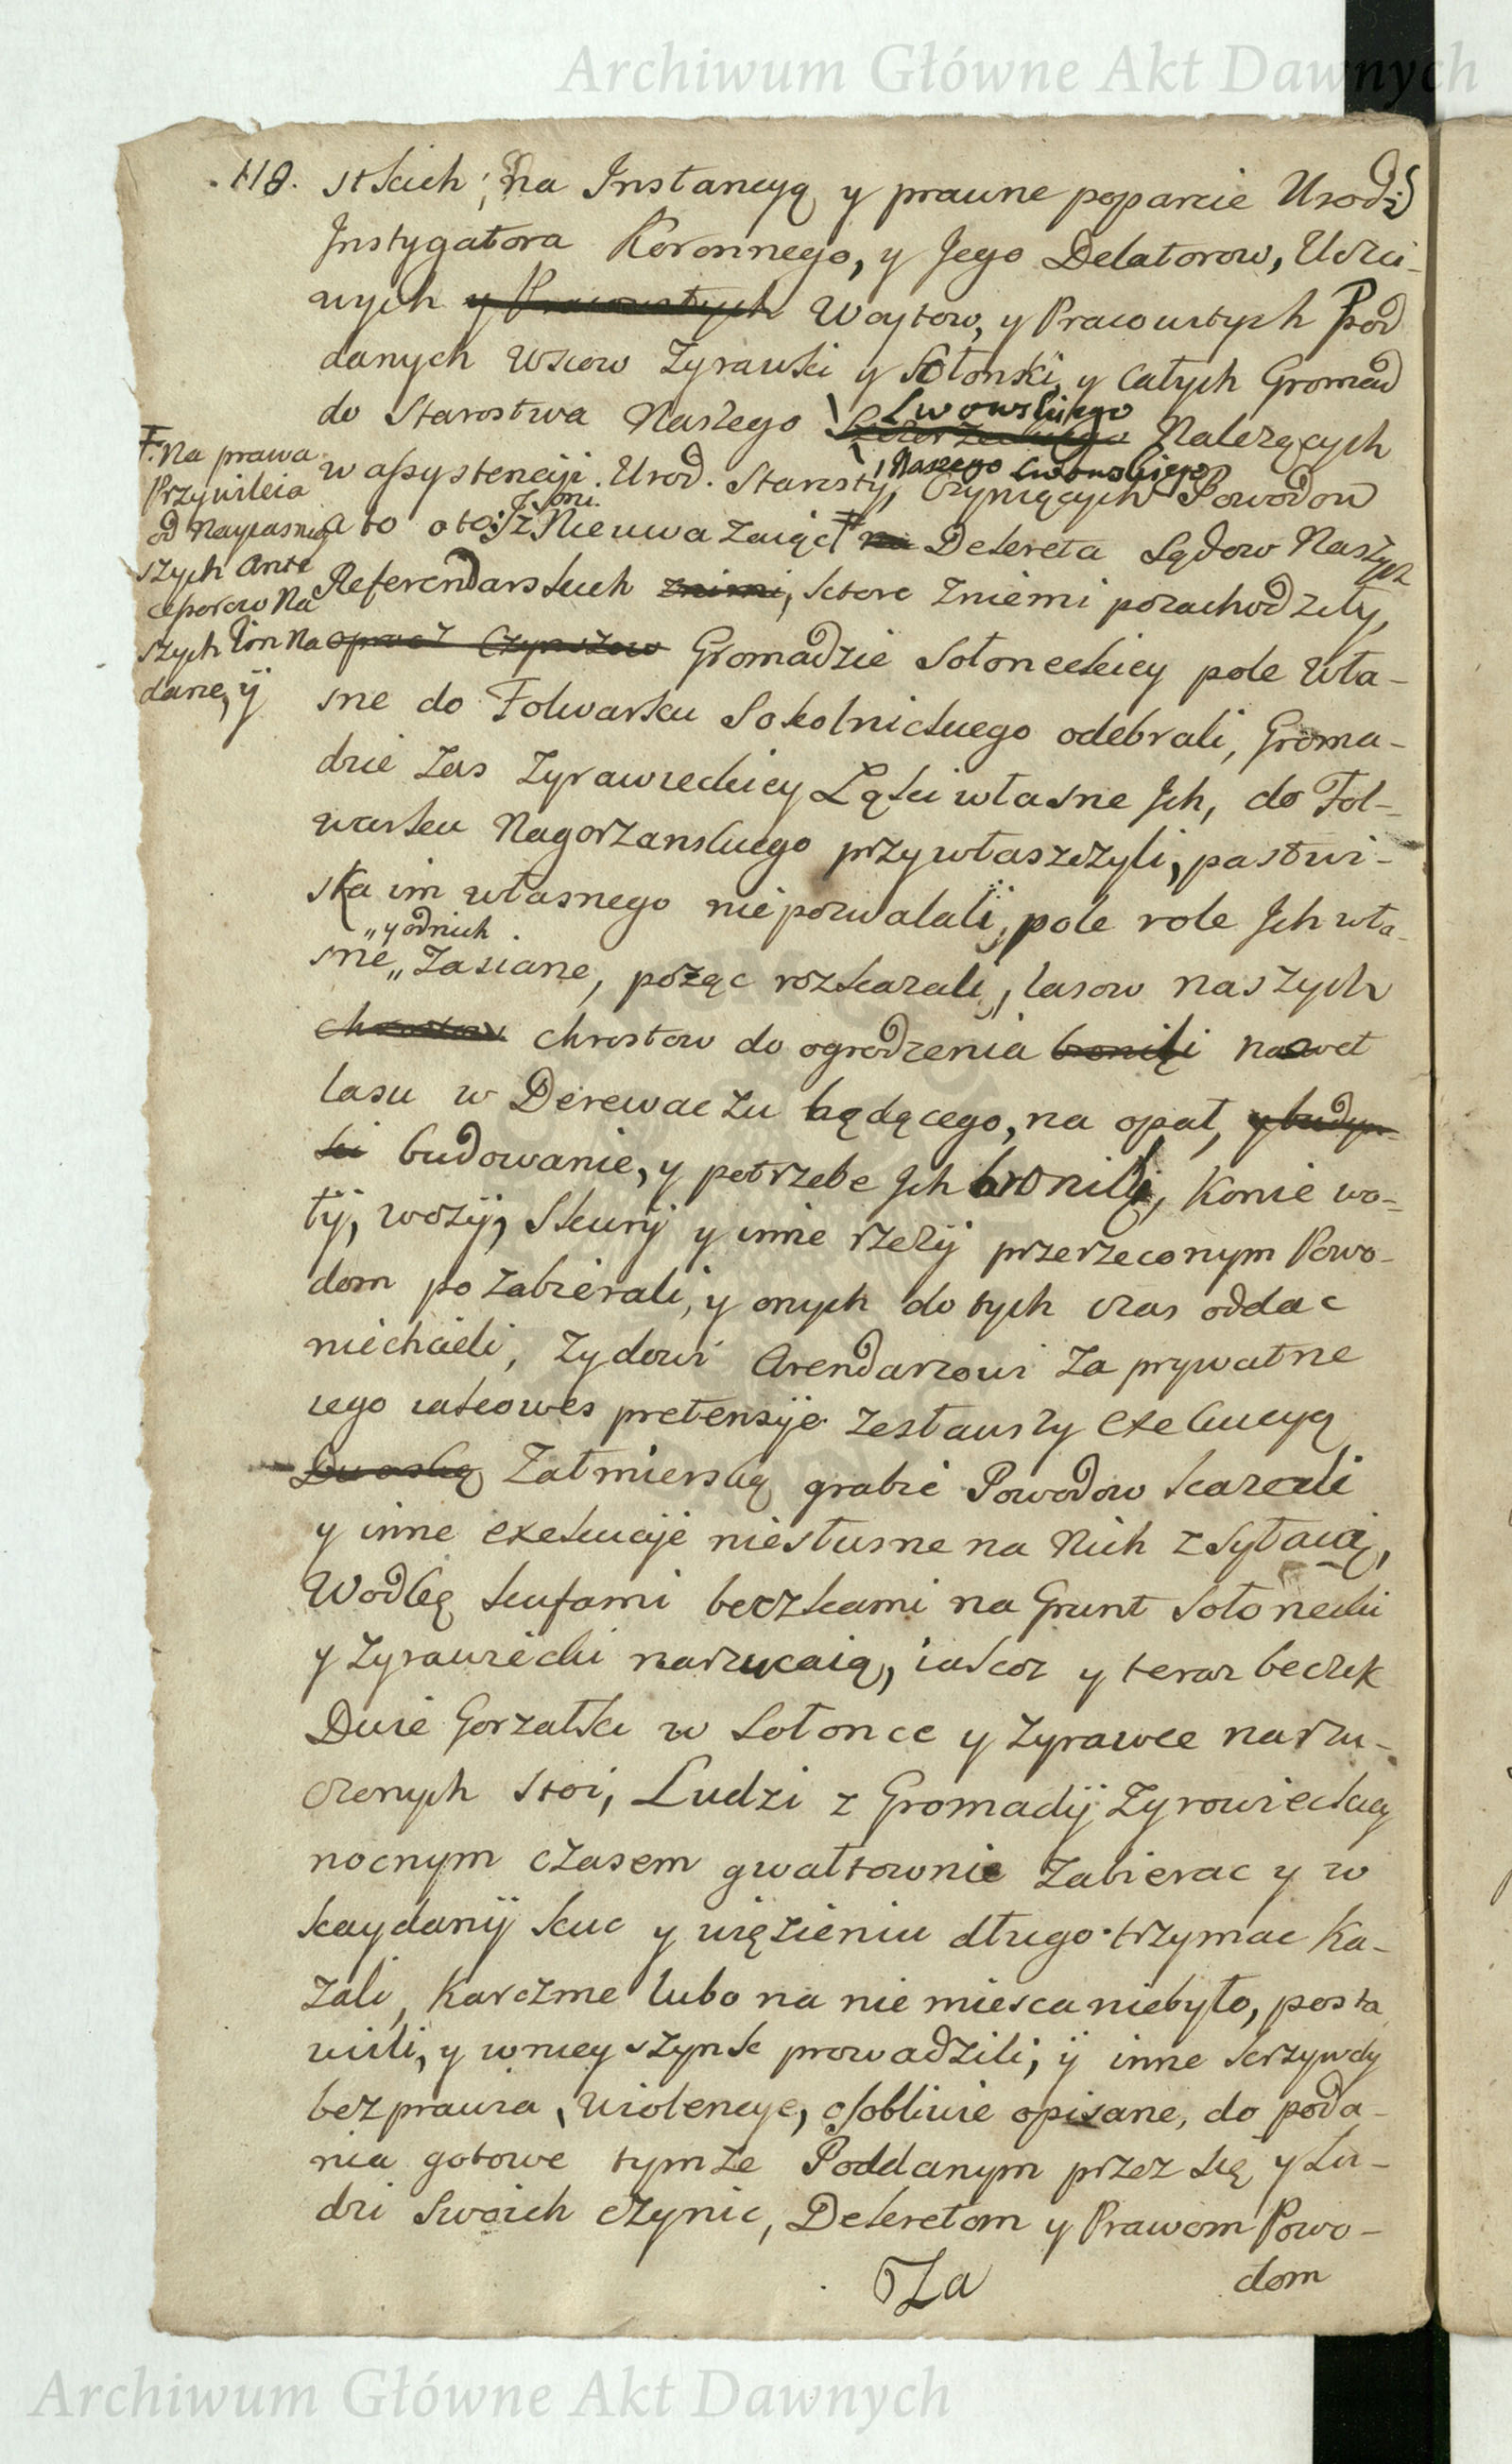 Archiwum Główne Akt Dawnych
118. stkich; na Instancyą y prawne poparcie Urodz
Instygatora Koronnego, y Jego Delatorow, Uczci-
wych y Pracowitych Woytow, y Pracowitych Pod
danych wsiow Zyrawki y Sołonki, y całych Gromad
do Starostwa Naszego Lwowskiego Nalezących
w assystencyi Urod. Starosty, Naszego Lwowskiego Czyniących Powodow
F. Na prawa
Przywileia
od Nayiasniey
szych Ante
cessorow Na
szych Im Na
dane, ÿ
a to oto: Jż Oni Nieuwazaiąc # na Dekreta Sądow Naszych
Referendarskich znimi, ktore zniemi pozachodziły,
oprocz Czynszow Gromadzie Sołoneckiey pole wła-
sne do Folwarku Sokolnickiego odebrali, Groma-
dzie zas Zyrawieckiey Łąki własne Jch, do Fol-
warku Nagorzanskiego przywłaszczyli, pastwi-
ska im własnego niepozwalali, pole role Jch wła-
sne „ y odnich „ Zasiane, pożąc rozkazali, lasow naszych
chrostow do ogrodzenia bronili nawet
lasu w Derewaczu będącego, na opał, y budyn-
ki budowanie, y potrzebe Jch bronili, Konie wo-
łÿ, wozÿ, Skurÿ y inne rzeczÿ przerzeconym Powo-
dom pozabierali, y onych do tych czas oddac
niechcieli, Zydowi Arendarzowi za prywatne
iego iakowes pretensÿe zesławszy exekucyą
Zołmierską grabic Powodow kazali
y inne exekucÿe niesłusne na Nich zsyłaią,
Wodkę kufami beczkami na Grunt Sołonecki
y Zyrawiecki narzucaią, iakoz y teraz beczek
Dwie Gorzałki w Sołonce y Zyrawce narzu-
conych stoi, Ludzi z Gromadÿ Zyrowieckiey
nocnym czasem gwałtownie Zabierac y w
kaydanÿ kuc y więzieniu długo trzymac Ka-
zali, Karczme lubo na nie miesca niebyło, posta
wili, y wniey szynk prowadzili, ÿ inne krzywdy
bezprawia, wiolencye, osobliwie opisane, do poda-
nia gotowe tymze Poddanym przez się y Lu-
dzi Swoich czynic, Dekretom y Prawom Powo-
Za dom
Archiwum Główne Akt Dawnych